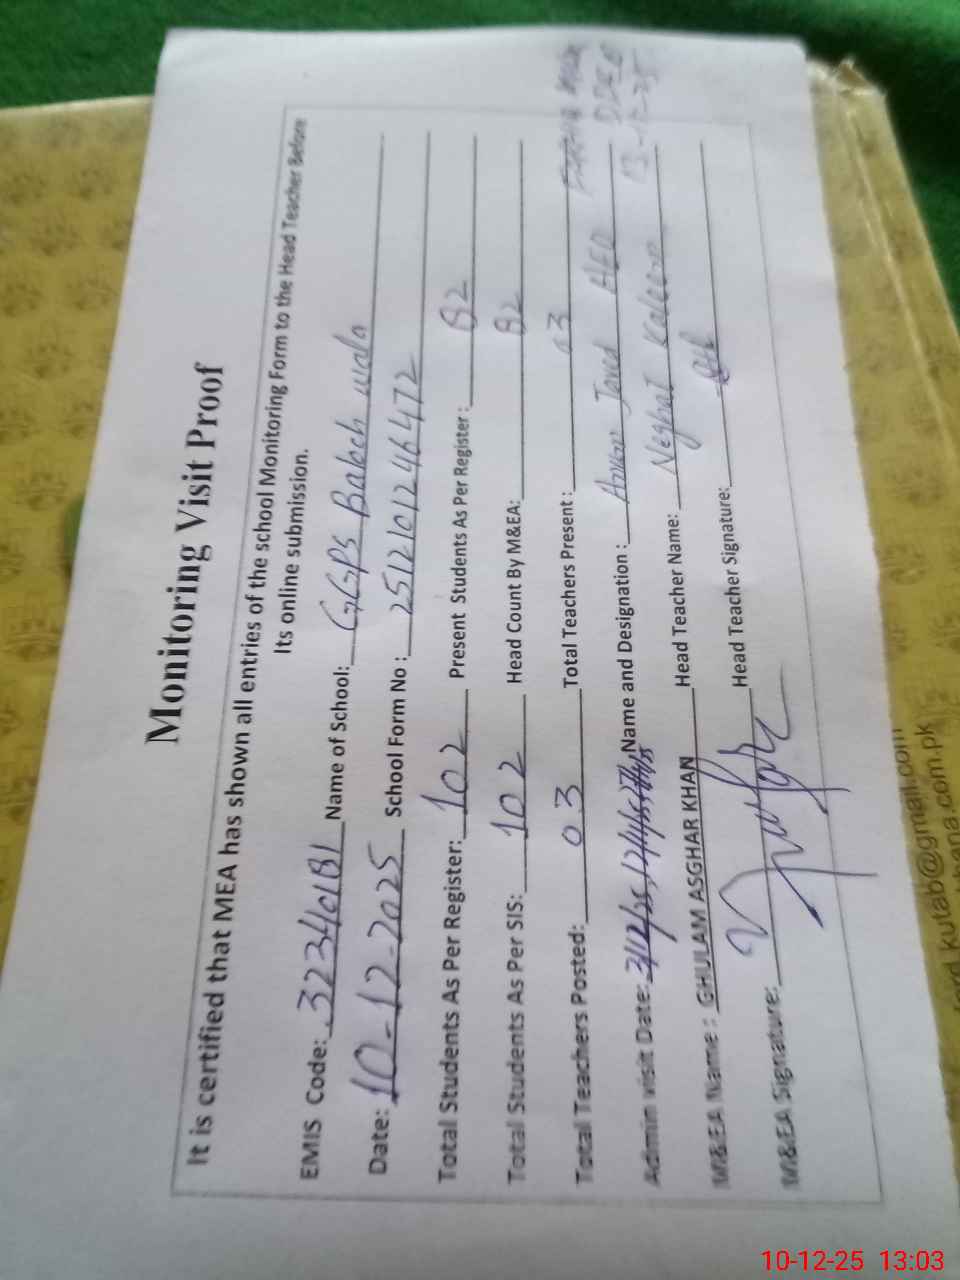 Monitoring Visit Proof
It is certified that MEA has shown all entries of the school Monitoring Form to the Head Teacher Before
Its online submission.
EMIS Code: 32340181 Name of School: GGPS Baloch wala
Date: 10-12-2025 School Form No: 2512101246472
Total Students As Per Register: 102 Present Students As Per Register: 82
Total Students As Per SIS: 102 Head Count By M&EA: 82
Total Teachers Posted: 03 Total Teachers Present: 03
Admin visit Date: Name and Designation: AEO DDEO
M&EA Name: GHULAM ASGHAR KHAN Head Teacher Name: Neghat Kalsoom
M&EA Signature: Head Teacher Signature:
kutab@gmail.com
10-12-25 13:03